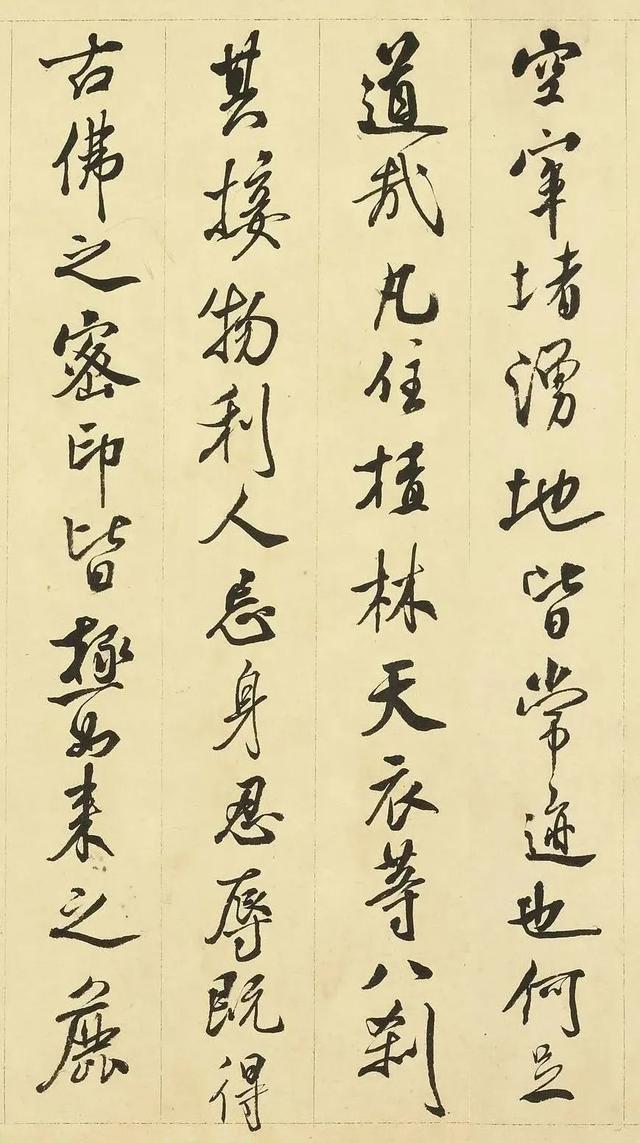 空穿堵湧地皆常迹也何足
道哉凡住樝林天衣等八刹
其接物利人忘身忍辱既得
古佛之密印皆極如来之麁